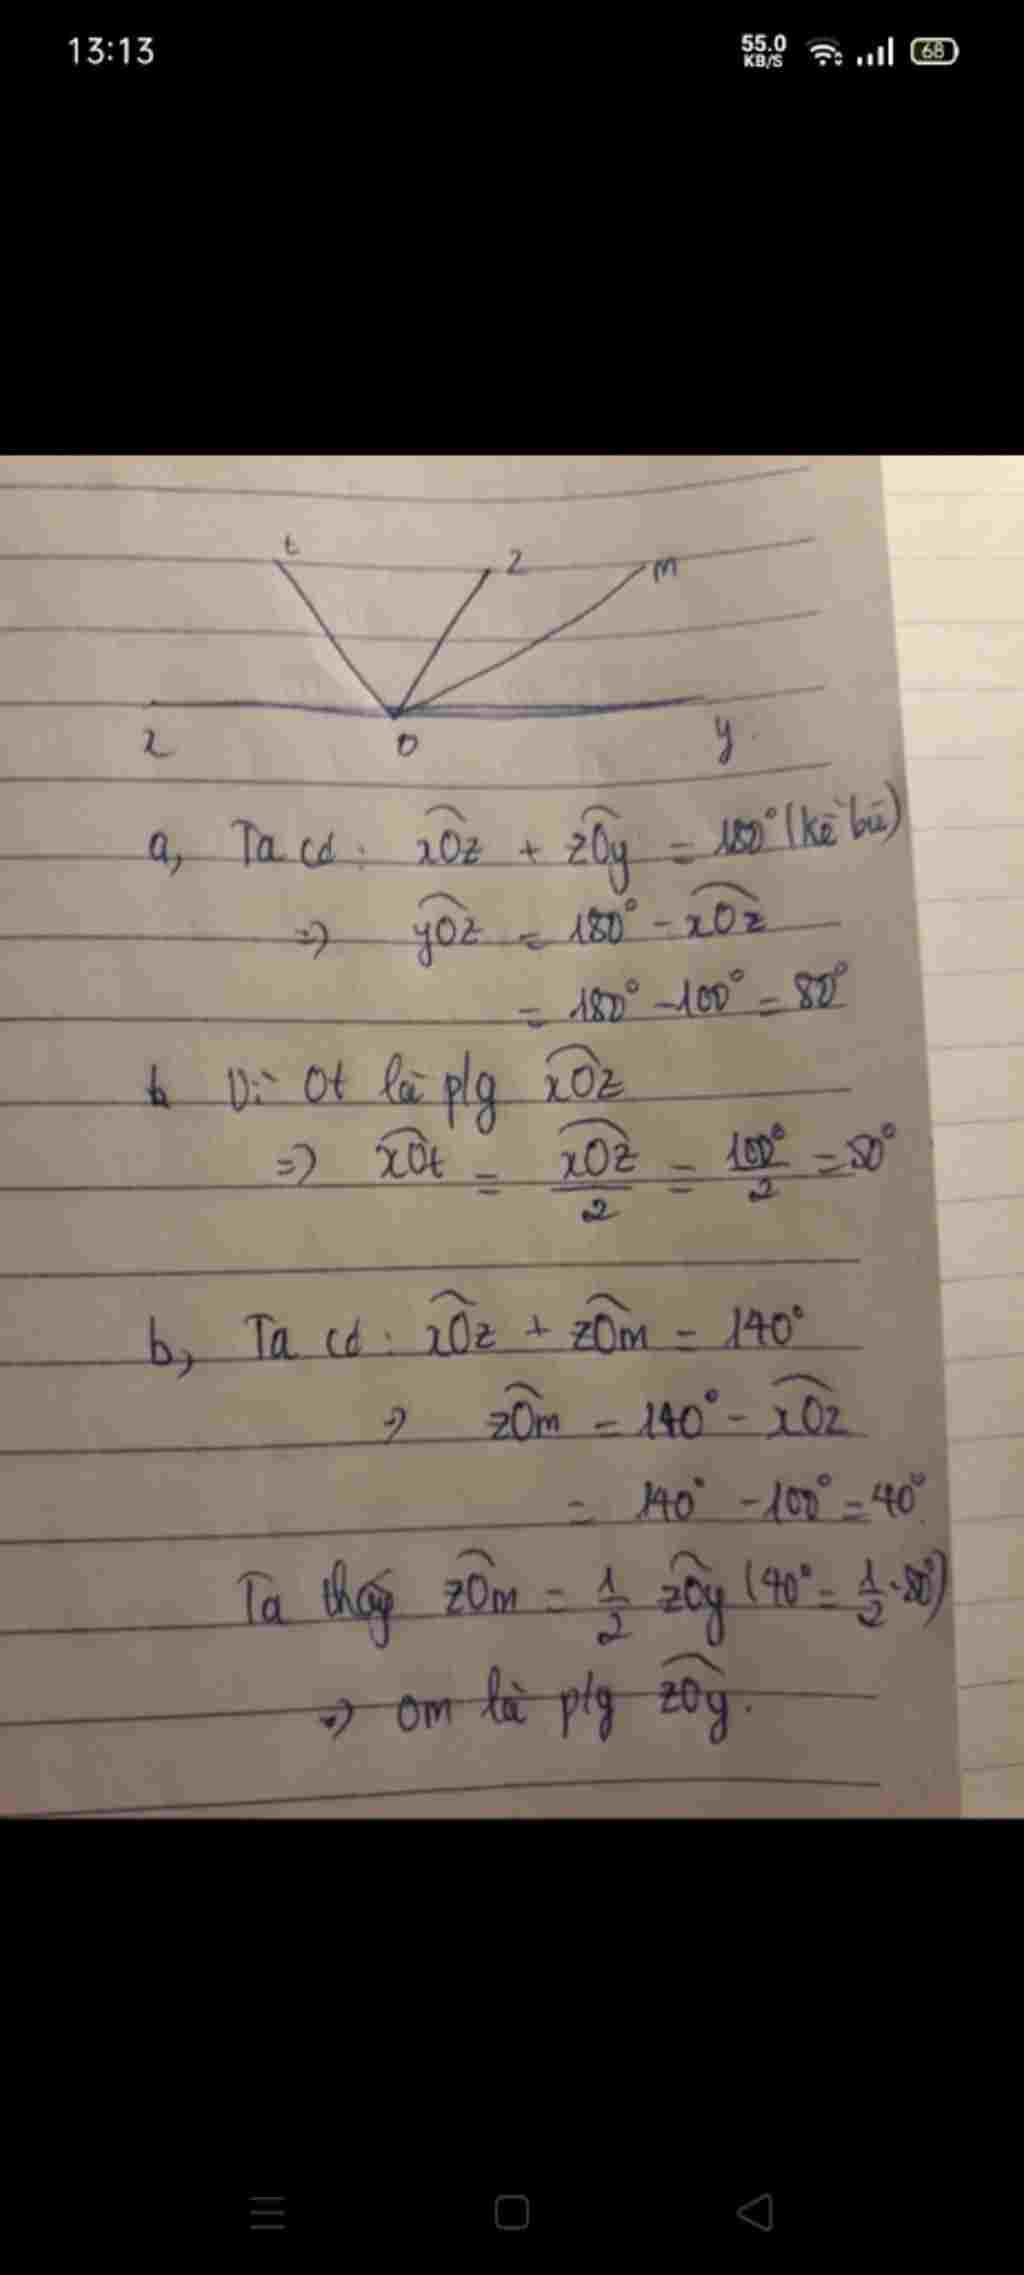 13:13
55.0 KB/S
68
t z m
x O y
a, Ta có: xOz + zOy = 180° (kề bù)
=> yOz = 180° - xOz
= 180° - 100° = 80°
Vì Ot là p/g xOz
=> xOt = xOz/2 = 100°/2 = 50°
b, Ta có: xOz + zOm = 140°
=> zOm = 140° - xOz
= 140° - 100° = 40°
Ta thấy zOm = 1/2 zOy (40° = 1/2 . 80°)
=> Om là p/g zOy.